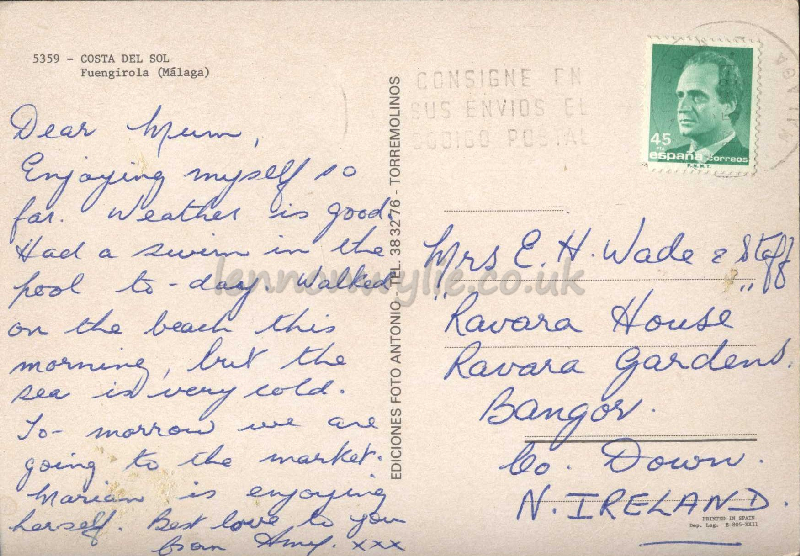 5359 - COSTA DEL SOL
Fuengirola (Málaga)
Dear Mum,
Enjoying myself so
far. Weather is good.
Had a swim in the
pool to-day. Walked
on the beach this
morning, but the
sea is very cold.
To-morrow we are
going to the market.
Marian is enjoying
herself. Best love to you
from Amy. xxx
EDICIONES FOTO ANTONIO - TEL. 38 32 76 - TORREMOLINOS
CONSIGNE EN
SUS ENVIOS EL
CODIGO POSTAL
45
españa correos
F.N.M.T.
Mrs E. H. Wade & Staff
"Ravara House"
Ravara Gardens,
Bangor.
Co. Down.
N. IRELAND.
PRINTED IN SPAIN
Dep. Leg. B. 866-XXII
lennonwylie.co.uk